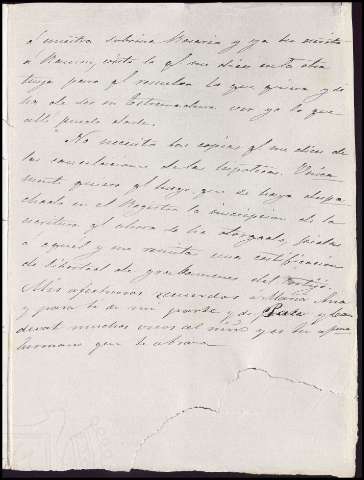 á nuestra sobrina Rosario y ya he escrito
a Ramon, visto lo ql me dices en tu otra
tuya para ql resuelva lo que quiera y si
ha de ser en Estremadura ver yo lo que
allí puedo darle.
No necesito las copias ql me dices de
las cancelaciones de la hipoteca. Unica
mente quiero ql luego que se haya despa
chado en el Registro la inscripcion de la
escritura ql ahora se ha otorgado, pidas
a aquel y me remita una certificacion
de libertad de gravámenes del Cortijo.
Mis afectuosos recuerdos a Maria Ana
y para ti de mi parte y de y
muchos besos al niño y es tu
hermano que te abraza